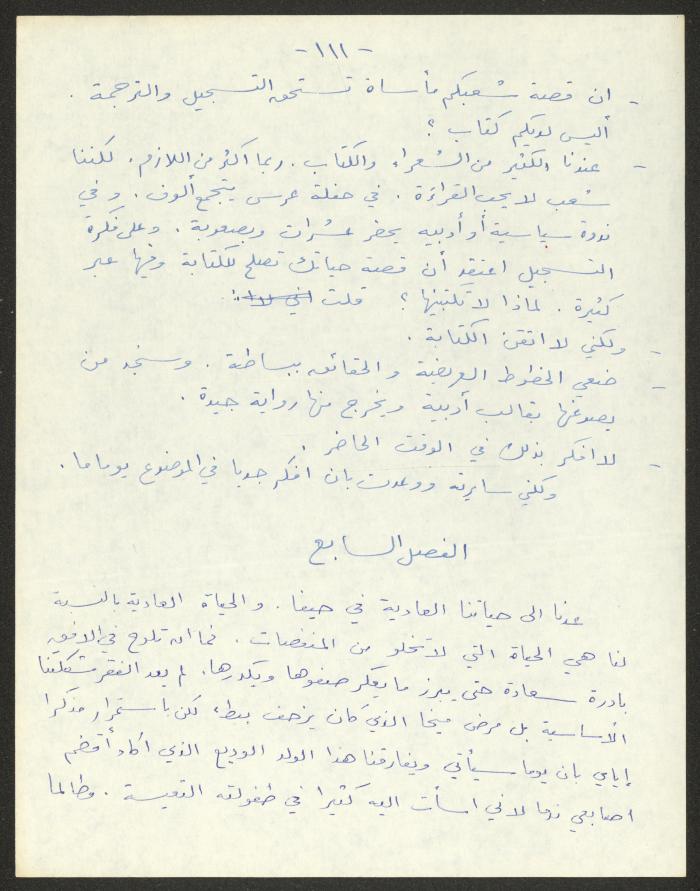 - ١١١ -
- ان قصة شعبكم مأساة تستحق التسجيل والترجمة .
أليس لديكم كتاب ؟
- عندنا الكثير من الشعراء والكتاب . ربما اكثر من اللازم . لكننا
شعب لا يحب القراءة . في حفلة عرس يتجمع ألوف . وفي
ندوة سياسية أو أدبيه يحضر عشرات وبصعوبة . وعلى فكرة
التسجيل اعتقد أن قصة حياتك تصلح للكتابة وفيها عبر
كثيرة . لماذا لا تكتبينها ؟ قلت
- ولكني لا اتقن الكتابة .
- ضعي الخطوط العريضة والحقائق ببساطة . وسنجد من
يصوغها بقالب أدبية ويخرج منها رواية جيدة .
- لا افكر بذلك في الوقت الحاضر .
ولكني سايرته ووعدت بان افكر جديا في الموضوع يوما ما .
الفصل السابع
عدنا الى حياتنا العادية في حيفا . والحياة العادية بالنسبة
لنا هي الحياة التي لا تخلو من المنغصات . فما ان تلوح في الافق
بادرة سعادة حتى يبرز ما يعكر صفوها ويكدرها . لم يعد الفقر مشكلتنا
الأساسية بل مرض ميخا الذي كان يزحف ببطء لكن باستمرار مذكرا
إياي بان يوما سيأتي ويفارقنا هذا الولد الوديع الذي اكاد أقضم
اصابعي ندما لاني اسأت اليه كثيرا في طفولته التعيسة . وطالما